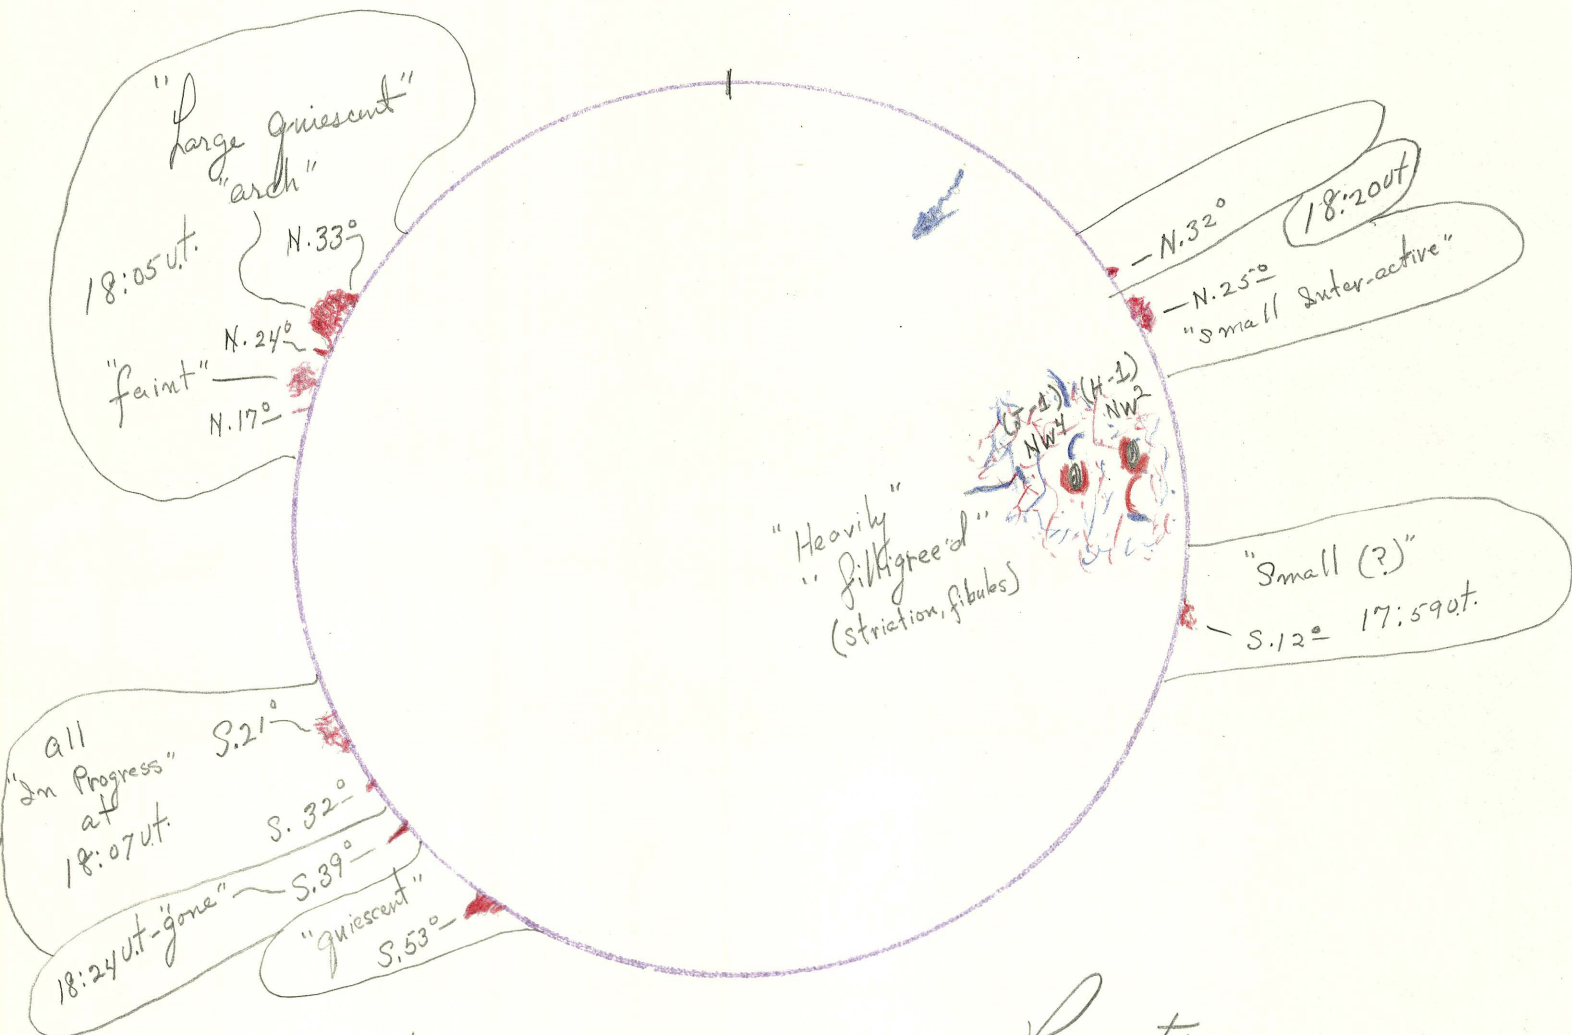 "Large quiescent"
"arch"
N.33°
18:05 u.t.
N.24°
"faint"
N.17°
N.32°
18:20ut
N.25°
"Small Inter-active"
(J-1) (H-1)
NW4 NW2
"Heavily"
"filligree'd"
(striation, fibules)
"Small (?)"
S.12° 17:59ut.
all
"In Progress"
at
18:07ut.
S.21°
S.32°
18:24ut-"gone"
S.39°
"quiescent"
S.53°